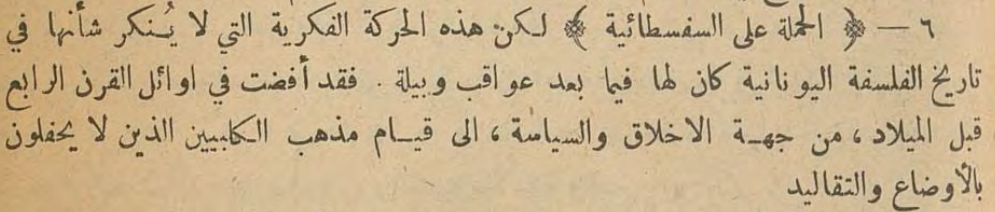 ٦ — ﴿ الحملة على السفسطائية ﴾ لكن هذه الحركة الفكرية التي لا يُنكر شأنها في
تاريخ الفلسفة اليونانية كان لها فيما بعد عواقب وبيلة . فقد أفضت في اوائل القرن الرابع
قبل الميلاد ، من جهة الاخلاق والسياسة ، الى قيام مذهب الكلبيين الذين لا يحفلون
بالأوضاع والتقاليد